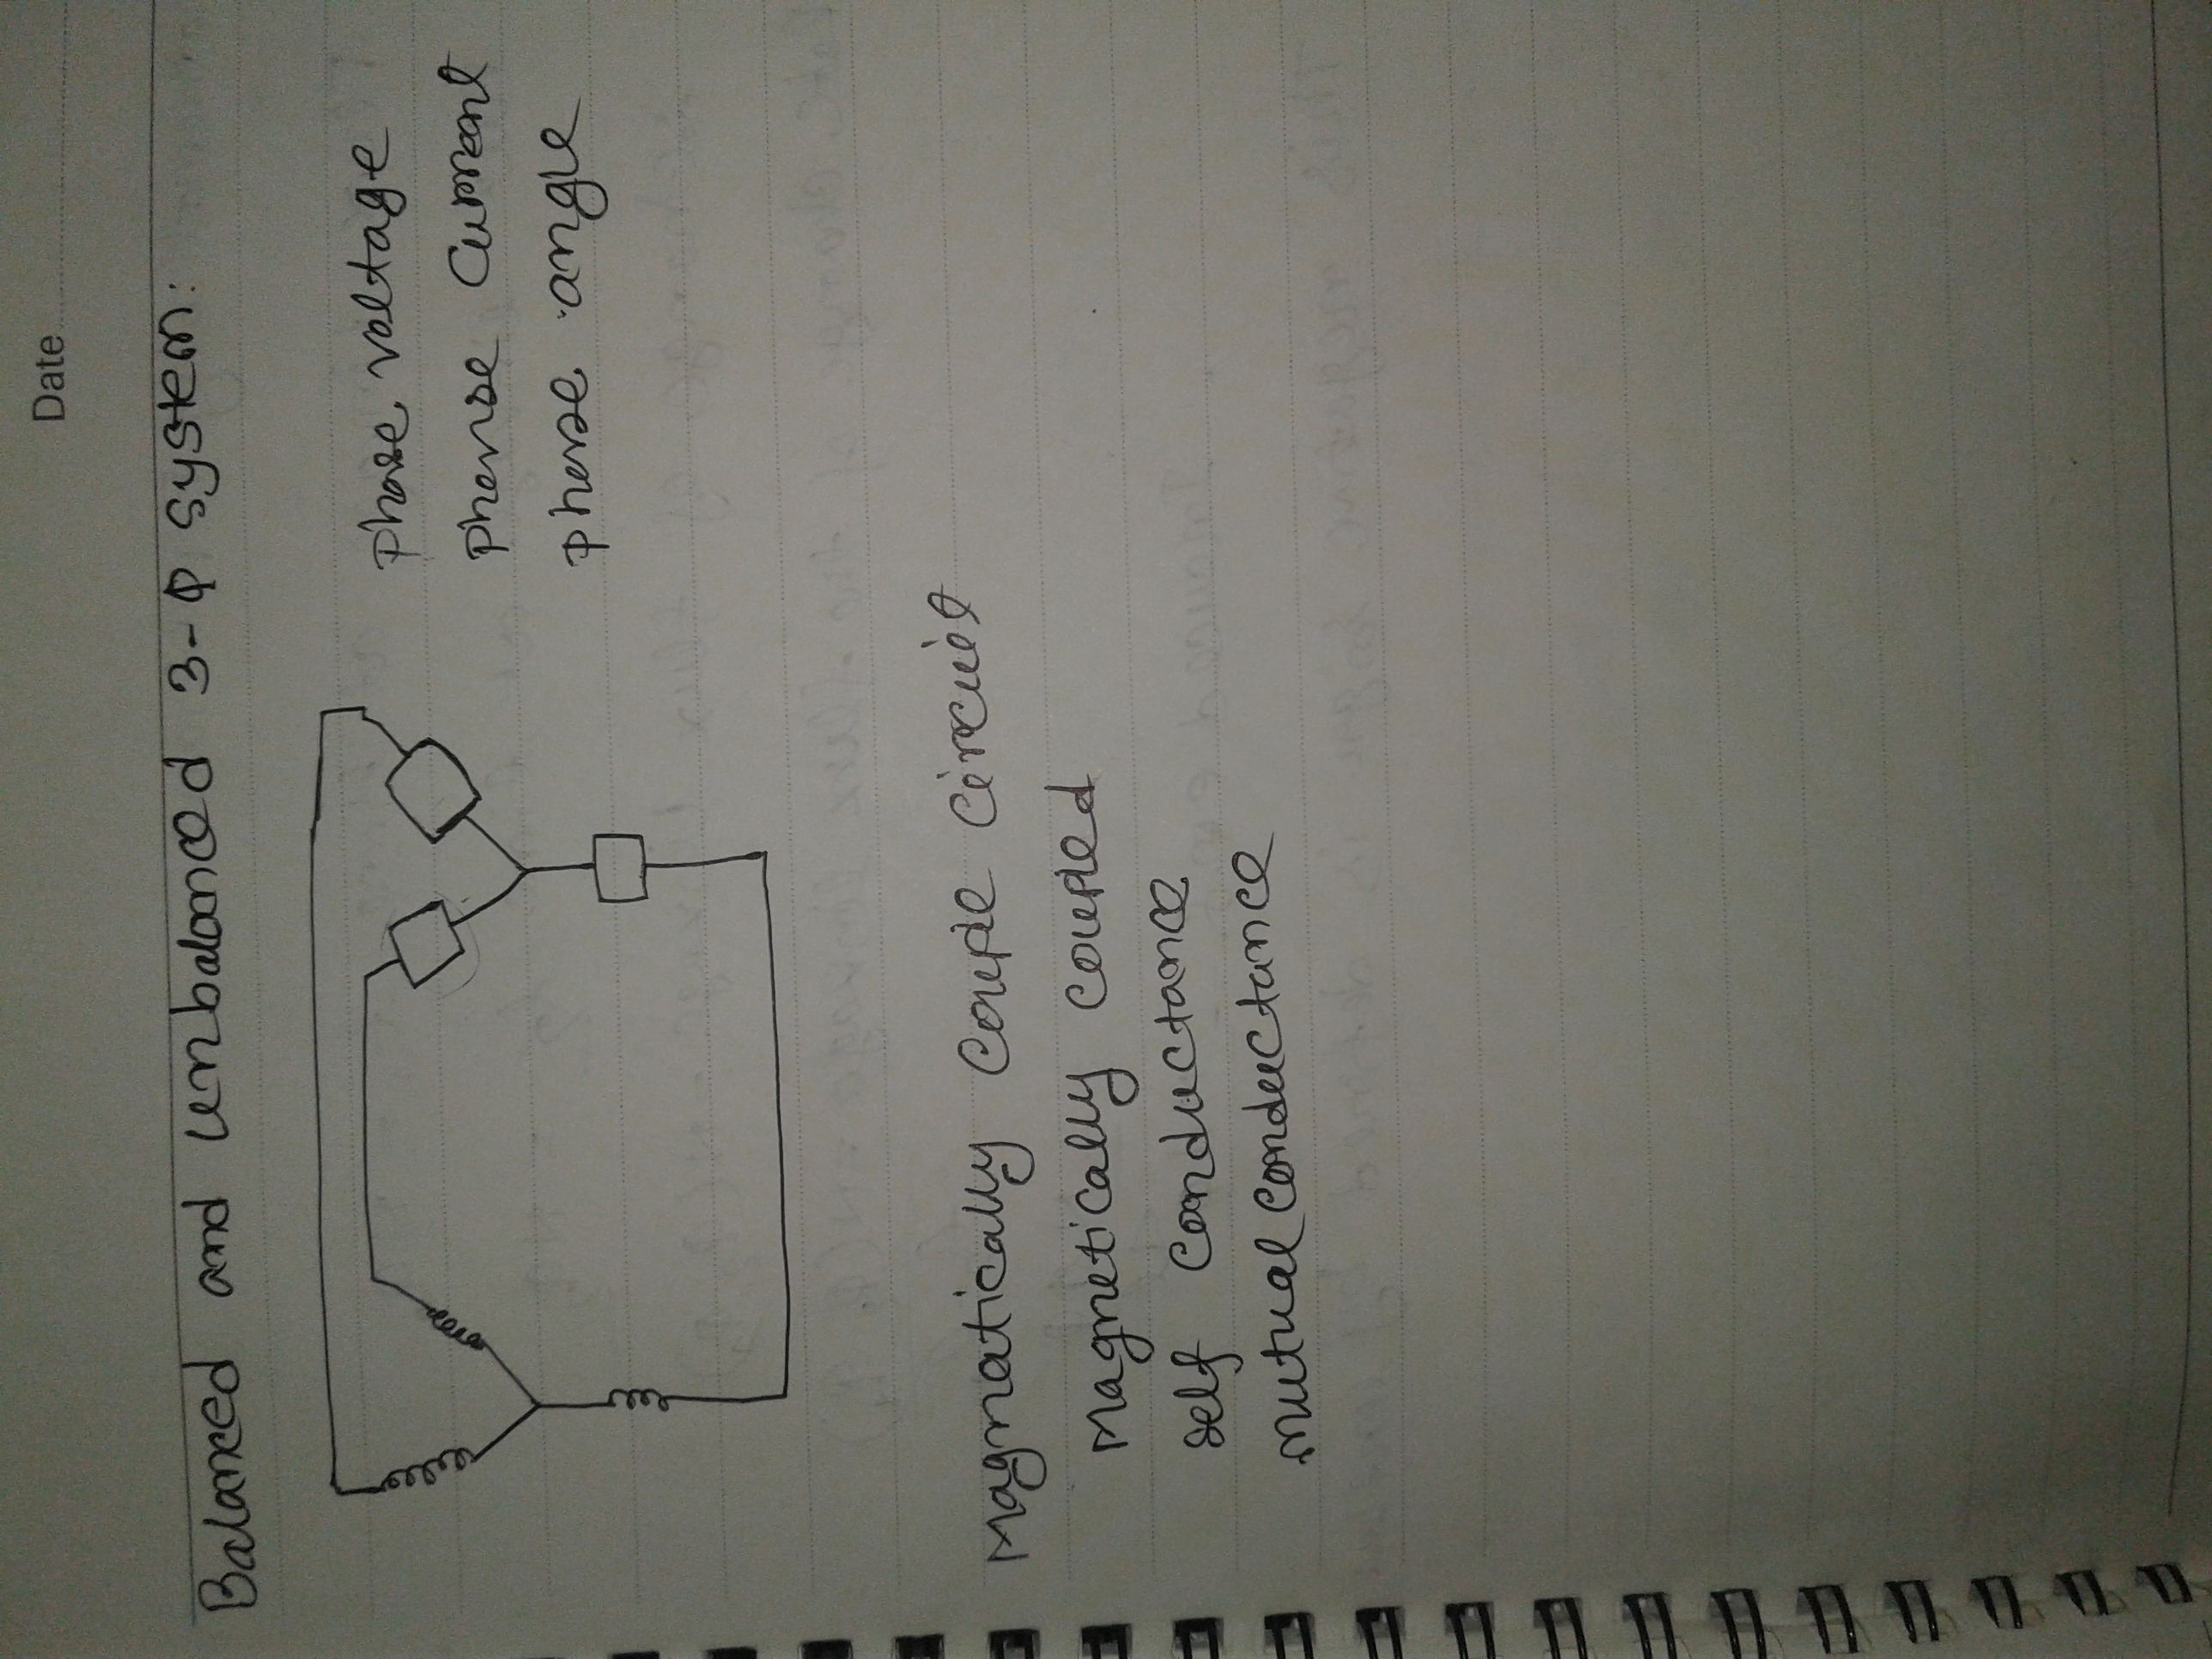 Date
Balanced and unbalanced 3-Φ system:
Phase voltage
Phense Current
Phase angle
Magnatically Couple Circuit
Magnetically Coupled
Self Conductance
Mutual Conductance